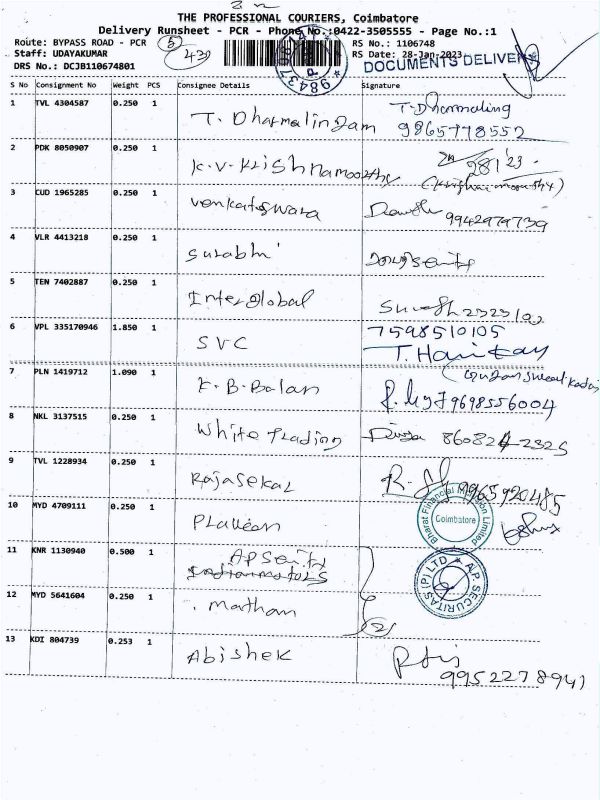 THE PROFESSIONAL COURIERS, Coimbatore
Delivery Runsheet - PCR - Phone No.:0422-3505555 - Page No.:1
Route: BYPASS ROAD - PCR
Staff: UDAYAKUMAR
DRS No.: DCJB110674801
5
430
98437
RS No.: 1106748
RS Date: 28-Jan-2023
DOCUMENTS DELIVE
S No Consignment No Weight PCS Consignee Details Signature
1 TVL 4304587 0.250 1 T. Dharmalingam T-Dharmaling
9865778552
2 PDK 8050907 0.250 1 K.V. Krishnamoorthy 28/1/23
(Krishnamoorthy)
3 CUD 1965285 0.250 1 Venkateswara 9942979739
4 VLR 4413218 0.250 1 Surabhi
5 TEN 7402887 0.250 1 Interglobal
6 VPL 335170946 1.850 1 SVC 7598510105
7 PLN 1419712 1.090 1 K.B. Balan
9698556004
8 NKL 3137515 0.250 1 White Trading Divya 860824 2325
9 TVL 1228934 0.250 1 Rajasekar 9965920485
10 MYD 4709111 0.250 1 Praveen
Bharat Financial Inclusion Limited
Coimbatore
11 KNR 1130940 0.500 1 AP Security
Indian motors
A.P. SECURITAS (P) LTD
12 MYD 5641604 0.250 1 Mathan
13 KDI 804739 0.253 1 Abishek
9952278941